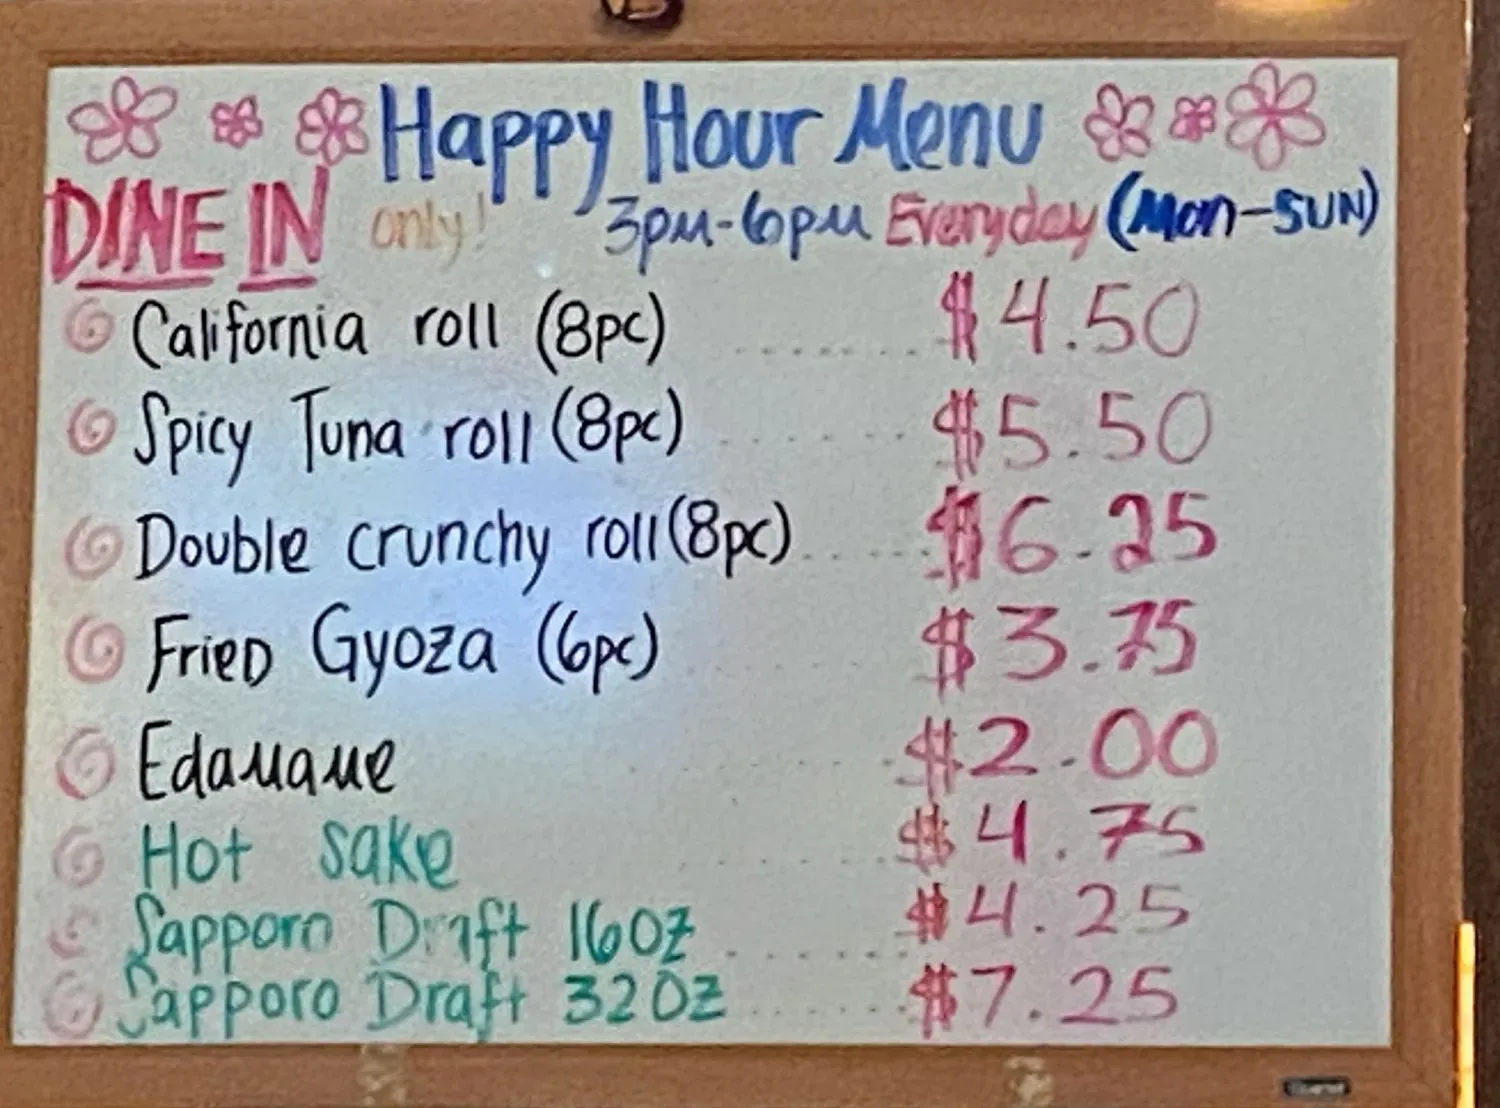 Happy Hour Menu
DINE IN only! 3pm-6pm Everyday (Mon-SUN)
California roll (8pc) ........ $4.50
Spicy Tuna roll (8pc) ........ $5.50
Double crunchy roll (8pc) ........ $6.25
Fried Gyoza (6pc) ........ $3.75
Edamame ........ $2.00
Hot sake ........ $4.75
Sapporo Draft 16oz ........ $4.25
Sapporo Draft 32oz ........ $7.25